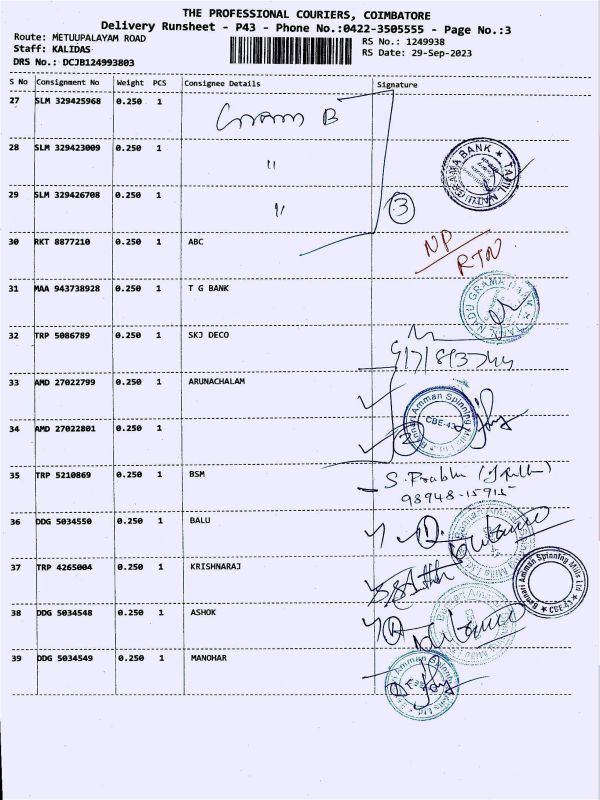 THE PROFESSIONAL COURIERS, COIMBATORE
Delivery Runsheet - P43 - Phone No.:0422-3505555 - Page No.:3
Route: METUUPALAYAM ROAD
RS No.: 1249938
Staff: KALIDAS
RS Date: 29-Sep-2023
DRS No.: DCJB124993803
S No Consignment No Weight PCS Consignee Details Signature
27 SLM 329425968 0.250 1 B
28 SLM 329423009 0.250 1 "
TAMIL NADU GRAMA BANK
29 SLM 329426708 0.250 1 "
3
30 RKT 8877210 0.250 1 ABC
NP
RTN
31 MAA 943738928 0.250 1 T G BANK
32 TRP 5086789 0.250 1 SKJ DECO
33 AMD 27022799 0.250 1 ARUNACHALAM
Bannari Amman Spinning Mills Ltd
CBE-43
34 AMD 27022801 0.250 1
35 TRP 5210869 0.250 1 BSM
S. Prabhu
98948-15915
36 DDG 5034550 0.250 1 BALU
37 TRP 4265004 0.250 1 KRISHNARAJ
Bannari Amman Spinning Mills Ltd
CBE-43
38 DDG 5034548 0.250 1 ASHOK
39 DDG 5034549 0.250 1 MANOHAR